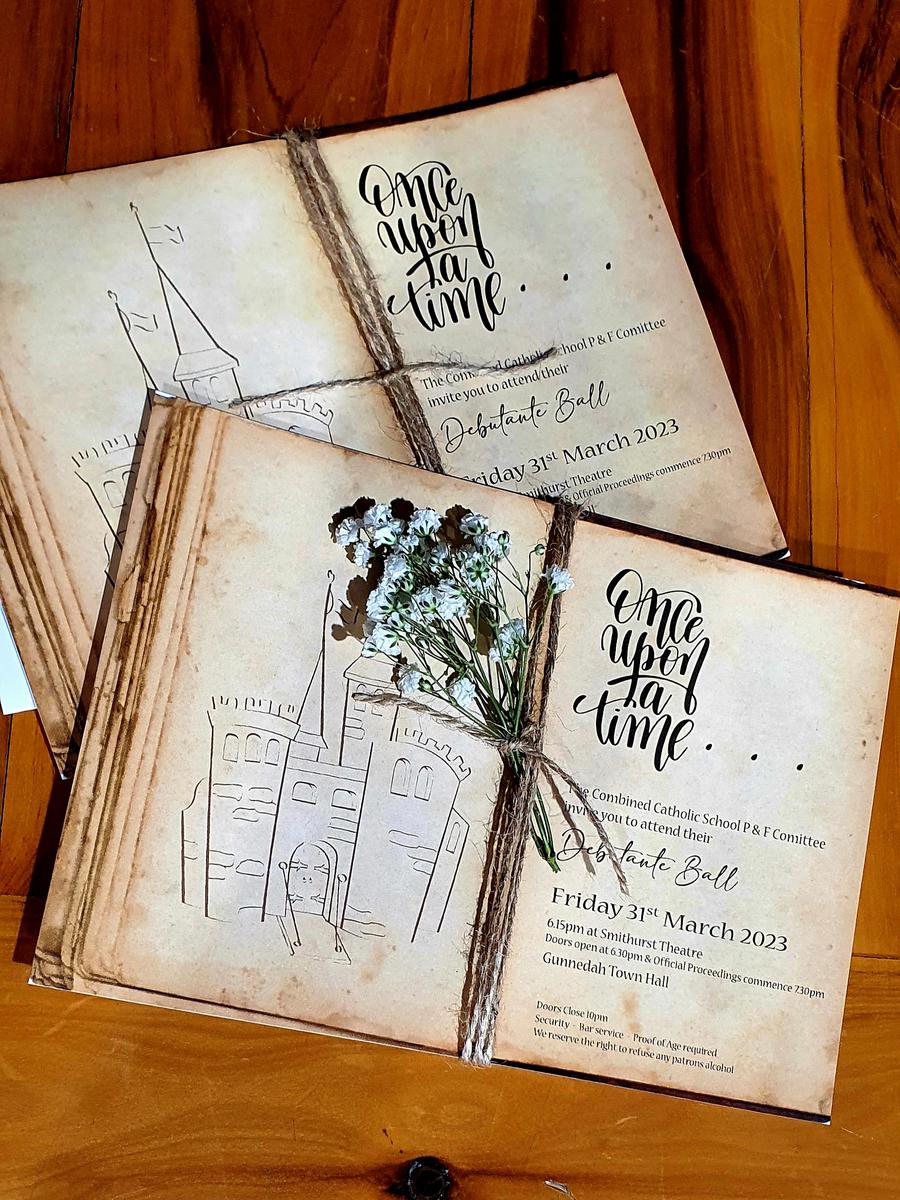 Once
upon
a
time . . . .
The Catholic School P & F Comittee
invite you to attend their
Debutante Ball
Friday 31st March 2023
Smithurst Theatre
& Official Proceedings commence 7.30pm
Once
upon
a
time . . .
The Combined Catholic School P & F Comittee
invite you to attend their
Debutante Ball
Friday 31st March 2023
6.15pm at Smithurst Theatre
Doors open at 6.30pm & Official Proceedings commence 7.30pm
Gunnedah Town Hall
Doors Close 10pm
Security - Bar service - Proof of Age required
We reserve the right to refuse any patrons alcohol